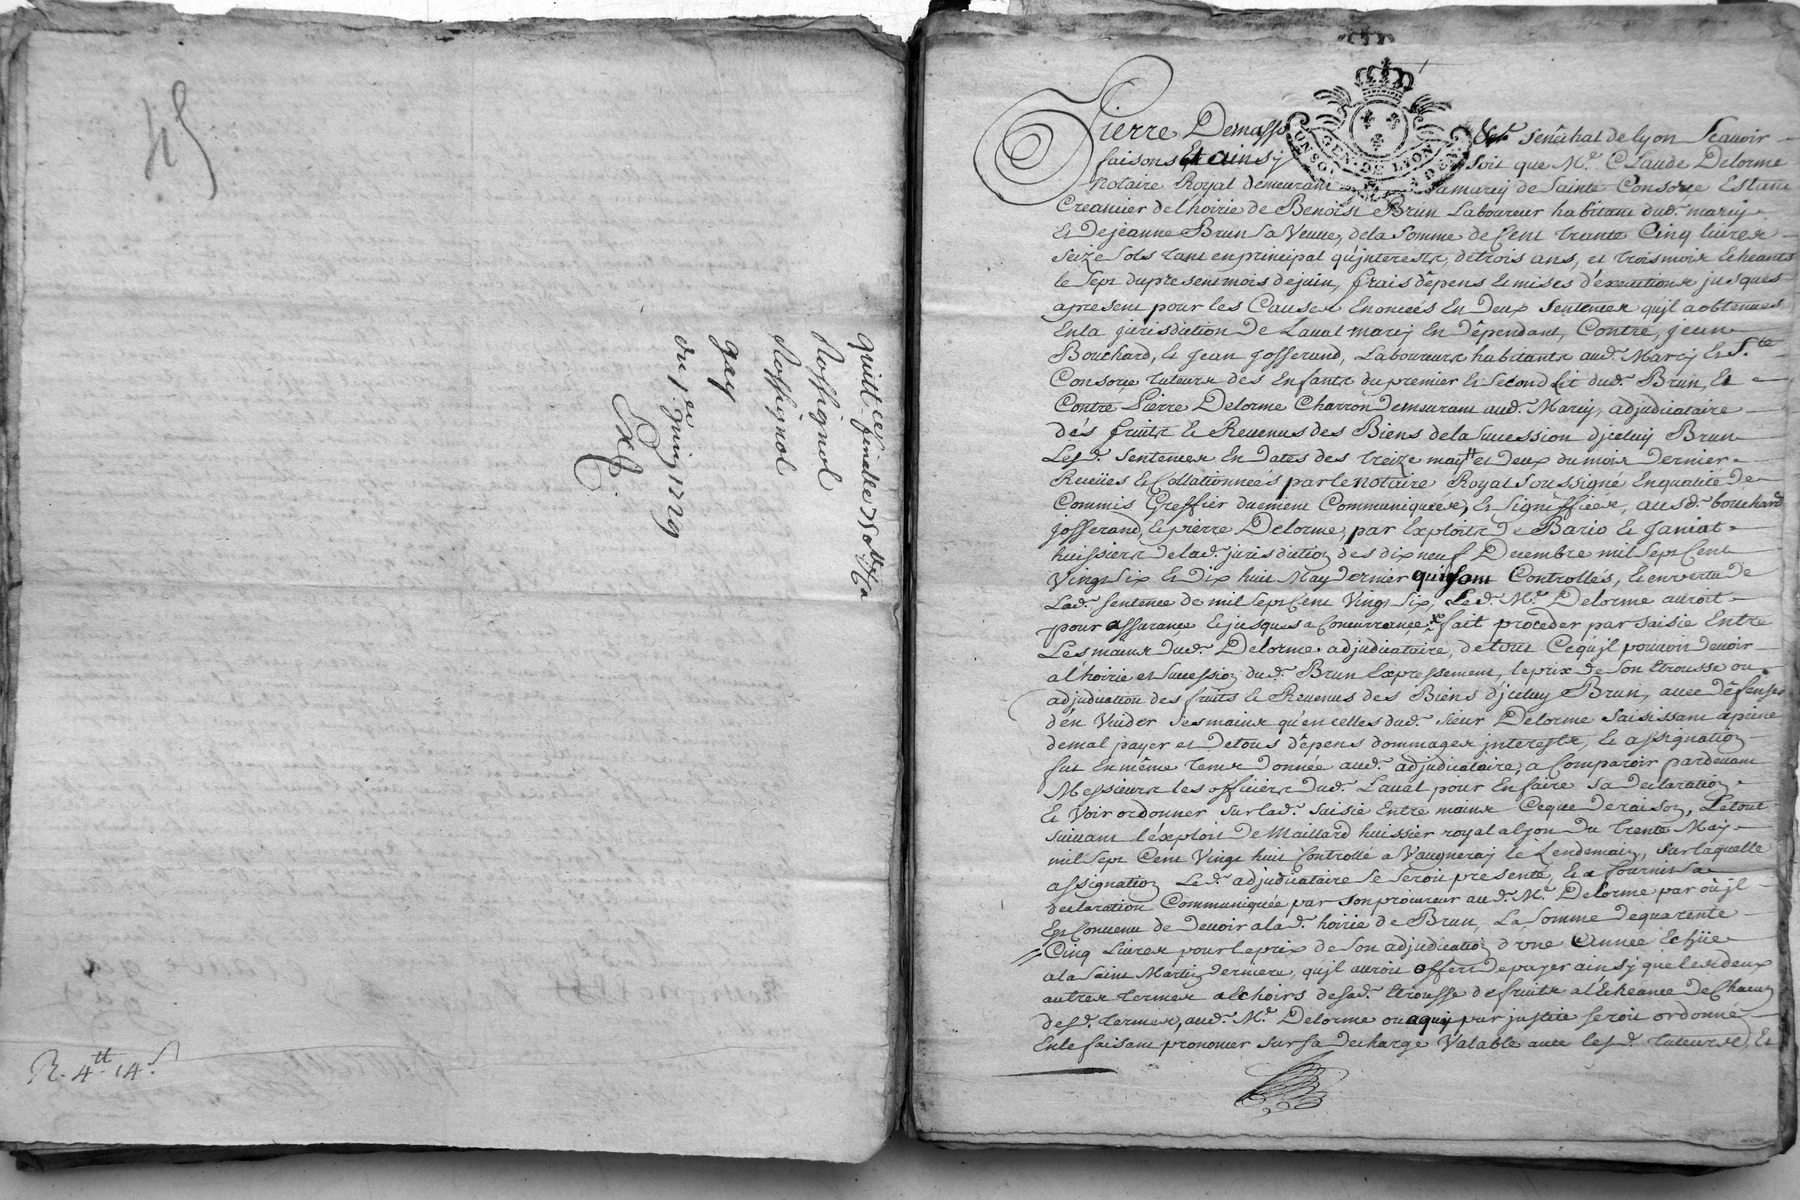 45
quittce finalle 750tt
Rossignol
Rossignol
gay
du 1er juin 1729
Exp.
R. 4tt 14s
Pierre Demasso Senéchal de lyon Scauoir
faisons Et ainsy soit que Me. Claude Delorme
Notaire Royal demeurant a marcy de Sainte Consorce Estant
Creancier de lhoirie de Benoist Brun Laboureur habitant dud. marcy
Et de jeanne Brun sa Veuve, de la Somme de Cent trante Cinq liures
Seize Sols tant en principal qu'interests, de trois ans, et trois mois Echeants
le Sept du present mois de juin, frais dêpens Et mises d'éxecutions jusques
apresent pour les Causes Enoncées En Deux Sentences qu'jl a obtenues
En la jurisdiction de Laual marcy En dêpendant, Contre, jean
Bouchard, Et jean josserand, Laboureurs habitants aud. Marcy Et Ste
Consorce tuteurs des Enfants du premier Et Second Lit dud. Brun, Et
Contre Pierre Delorme Charron demeurant aud. Marcy, adjudicataire
dés fruits Et Reuenus des Biens de la Sucession d'jceluy Brun
Lesd. Sentences En dates des treize may et deux du mois dernier
Receües Et Collationneés par le notaire Royal Soussigné En qualité de
Commis Greffier duement Communiquées, Et Signiffiées, ausd. bouchard
josserand, Et pierre Delorme, par Exploits de Bario Et janiat
huissiers de lad. jurisdiction des dix neuf Decembre mil Sept Cent
Vingt Six Et Dix huit May dernier qui sont Controllés, Et en vertu de
Lad. Sentence de mil Sept Cent Vingt Six, Led. Me. Delorme auroit
pour assurance Et jusques a Concurrance fait proceder par Saisie Entre
Les mains dud. Delorme adjudicataire, de tout Ce qu'jl pouuoit deuoir
a l'hoirie et Sucession dud. Brun Expressement, le prix de Son Etrousse ou
adjudication des fruits Et Reuenus des Biens d'jceluy Brun, auec dêfenses
d'én Vuider Ses mains qu'en celles dud. Sieur Delorme Saisissant apeine
de mal payer et de tous dêpens dommages jnterests, Et assignation
fut En même tems donnée aud. adjudicataire, a Comparoir pardeuant
Messieurs les officiers dud. Laual pour En faire Sa declaration
Et Voir ordonner Sur lad. Saisie Entre mains Ce que de raison, Le tout
Suiuant l'éxploit de Maillard huissier royal a lyon du trente May
mil Sept Cent Vingt huit Controllé a Vaugneray le Lendemain, Sur laquelle
assignation Led. adjudicataire Se Seroit presenté, Et a fourni Sa
declaration Communiquée par Son procureur aud. Me. Delorme par où jl
Est Conuenu de deuoir a lad. hoirie de Brun, La Somme de quarente
Cinq Liures pour le prix de Son adjudication d'vne Année Echüe
a la Saint Martin derniere, qu'jl auroit offert de payer ainsy que les deux
autres termes a Echoirs de Sad. Etrousse de fruits a l'Echeance de Chacun
desd. termes, aud. Me. Delorme ou a qui par justice Seroit ordonné
En le faisant prononcer Sur Sa decharge Valable auec lesd. tuteurs, Et